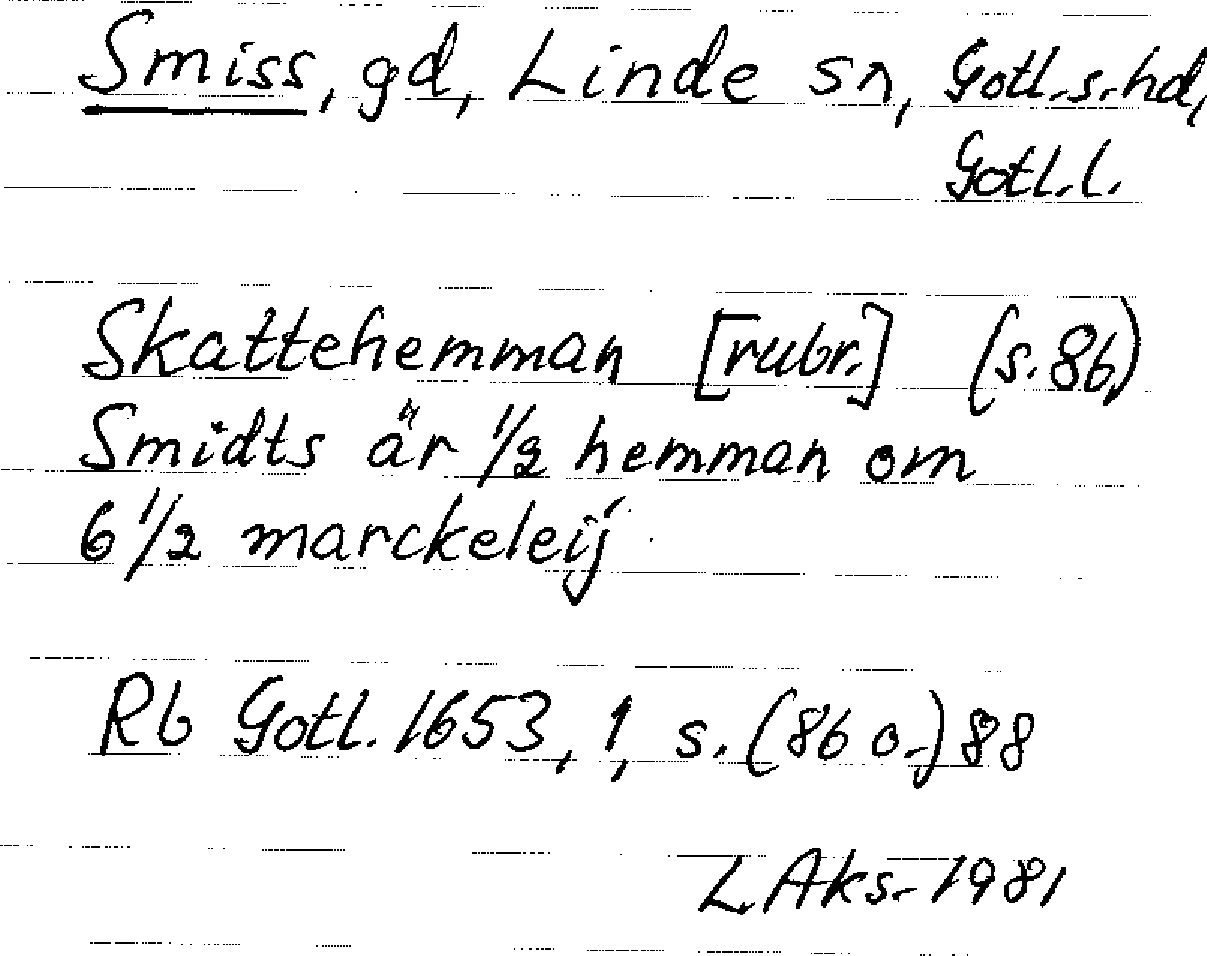 Smiss, gd, Linde sn, Gotl.s.hd,
Gotl.l.
Skattehemman [rubr.] (s.86)
Smidts är 1/2 hemman om
6 1/2 marckeleij
Rb Gotl. 1653, 1, s. (86 o.) 88
L Aks. 1981